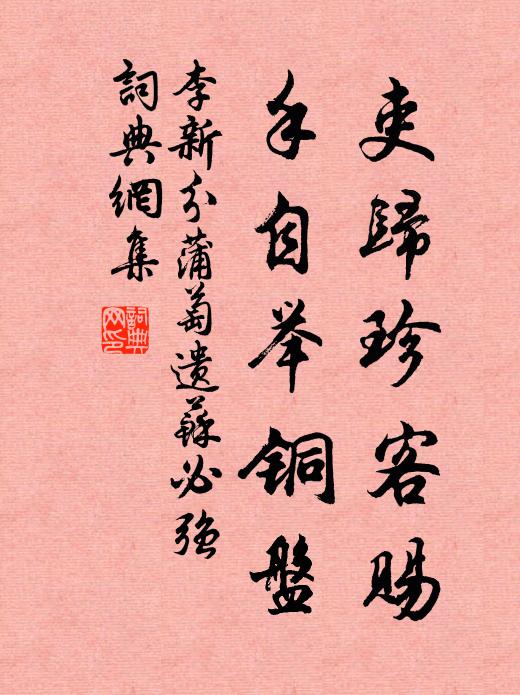 吏歸珍客賜
手自举銅盤
李新分蒲萄遗蘇必强
詞典網集
詞典网印